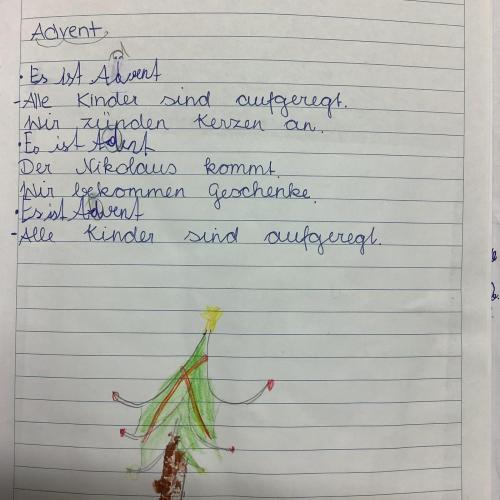 Advent
· Es ist Advent
- Alle Kinder sind aufgeregt.
Wir zünden Kerzen an.
· Es ist Advent
Der Nikolaus kommt.
Wir bekommen Geschenke.
· Es ist Advent
- Alle Kinder sind aufgeregt.